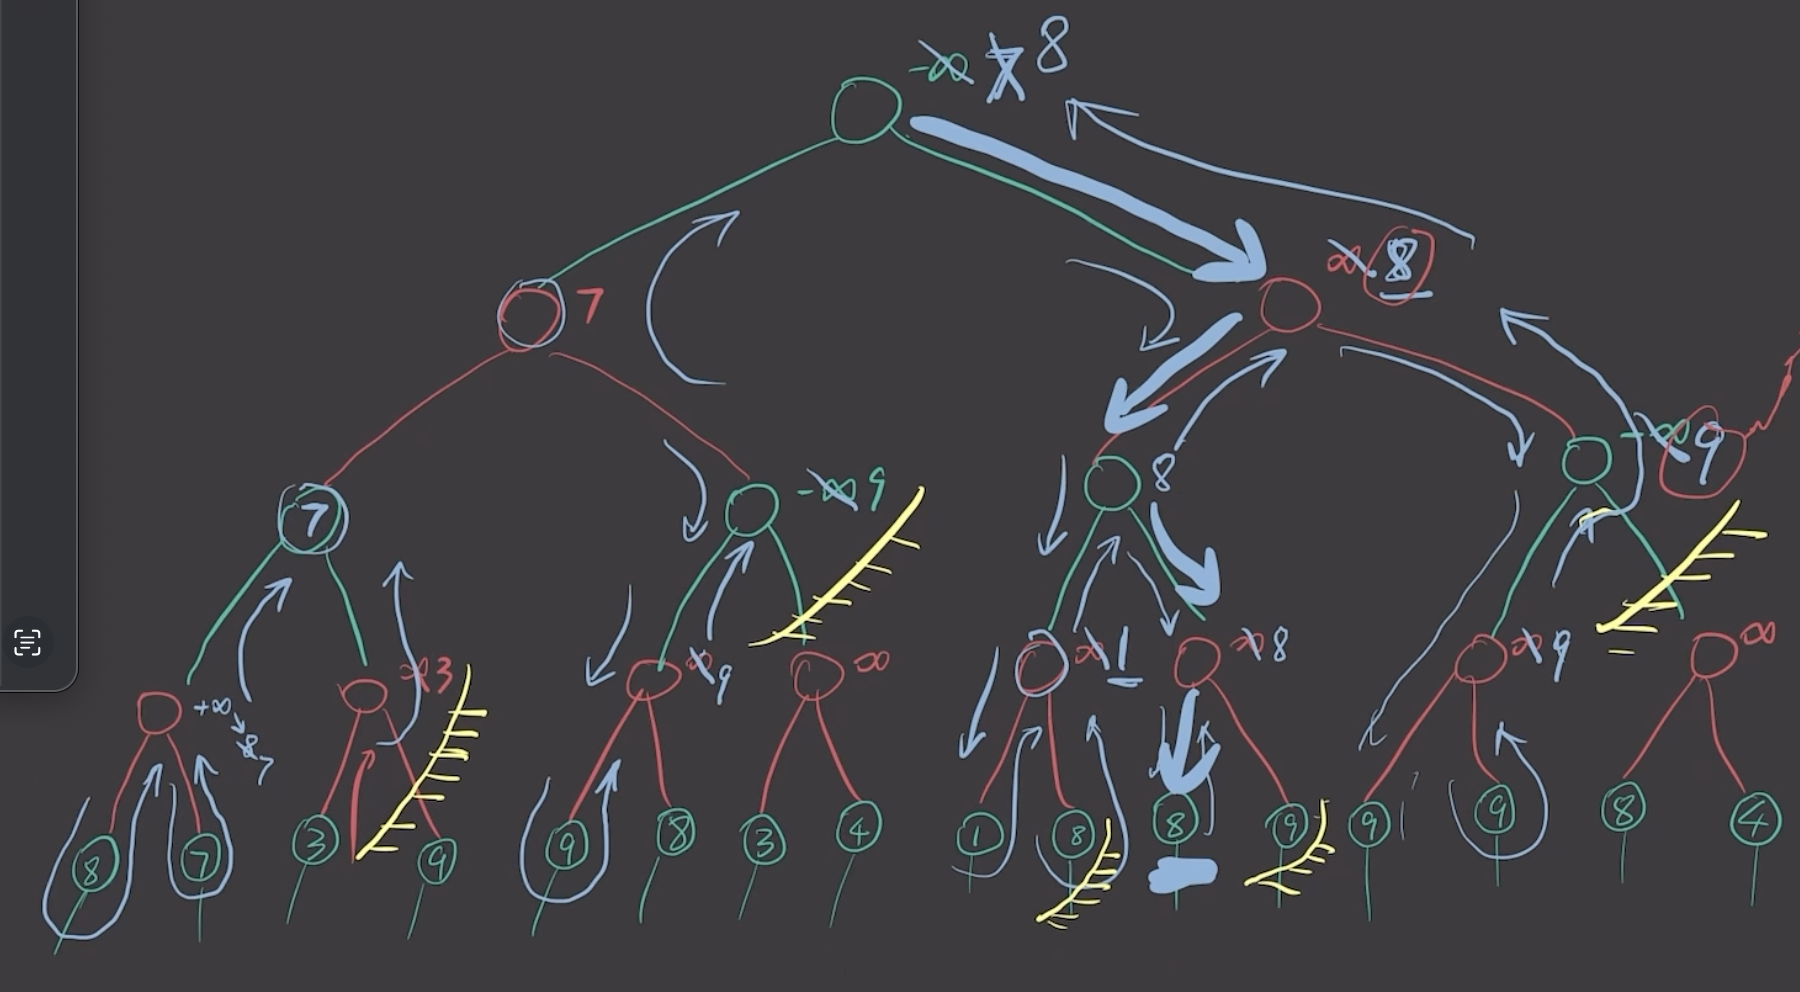 -∞ 7 8
∞ 8
7
8
-∞ 9
7
-∞ 9
∞ 1
∞ 8
∞ 9
∞
+∞
8
7
∞ 3
∞ 9
∞
8 7 3 9 9 8 3 4 1 8 8 9 9 9 8 4